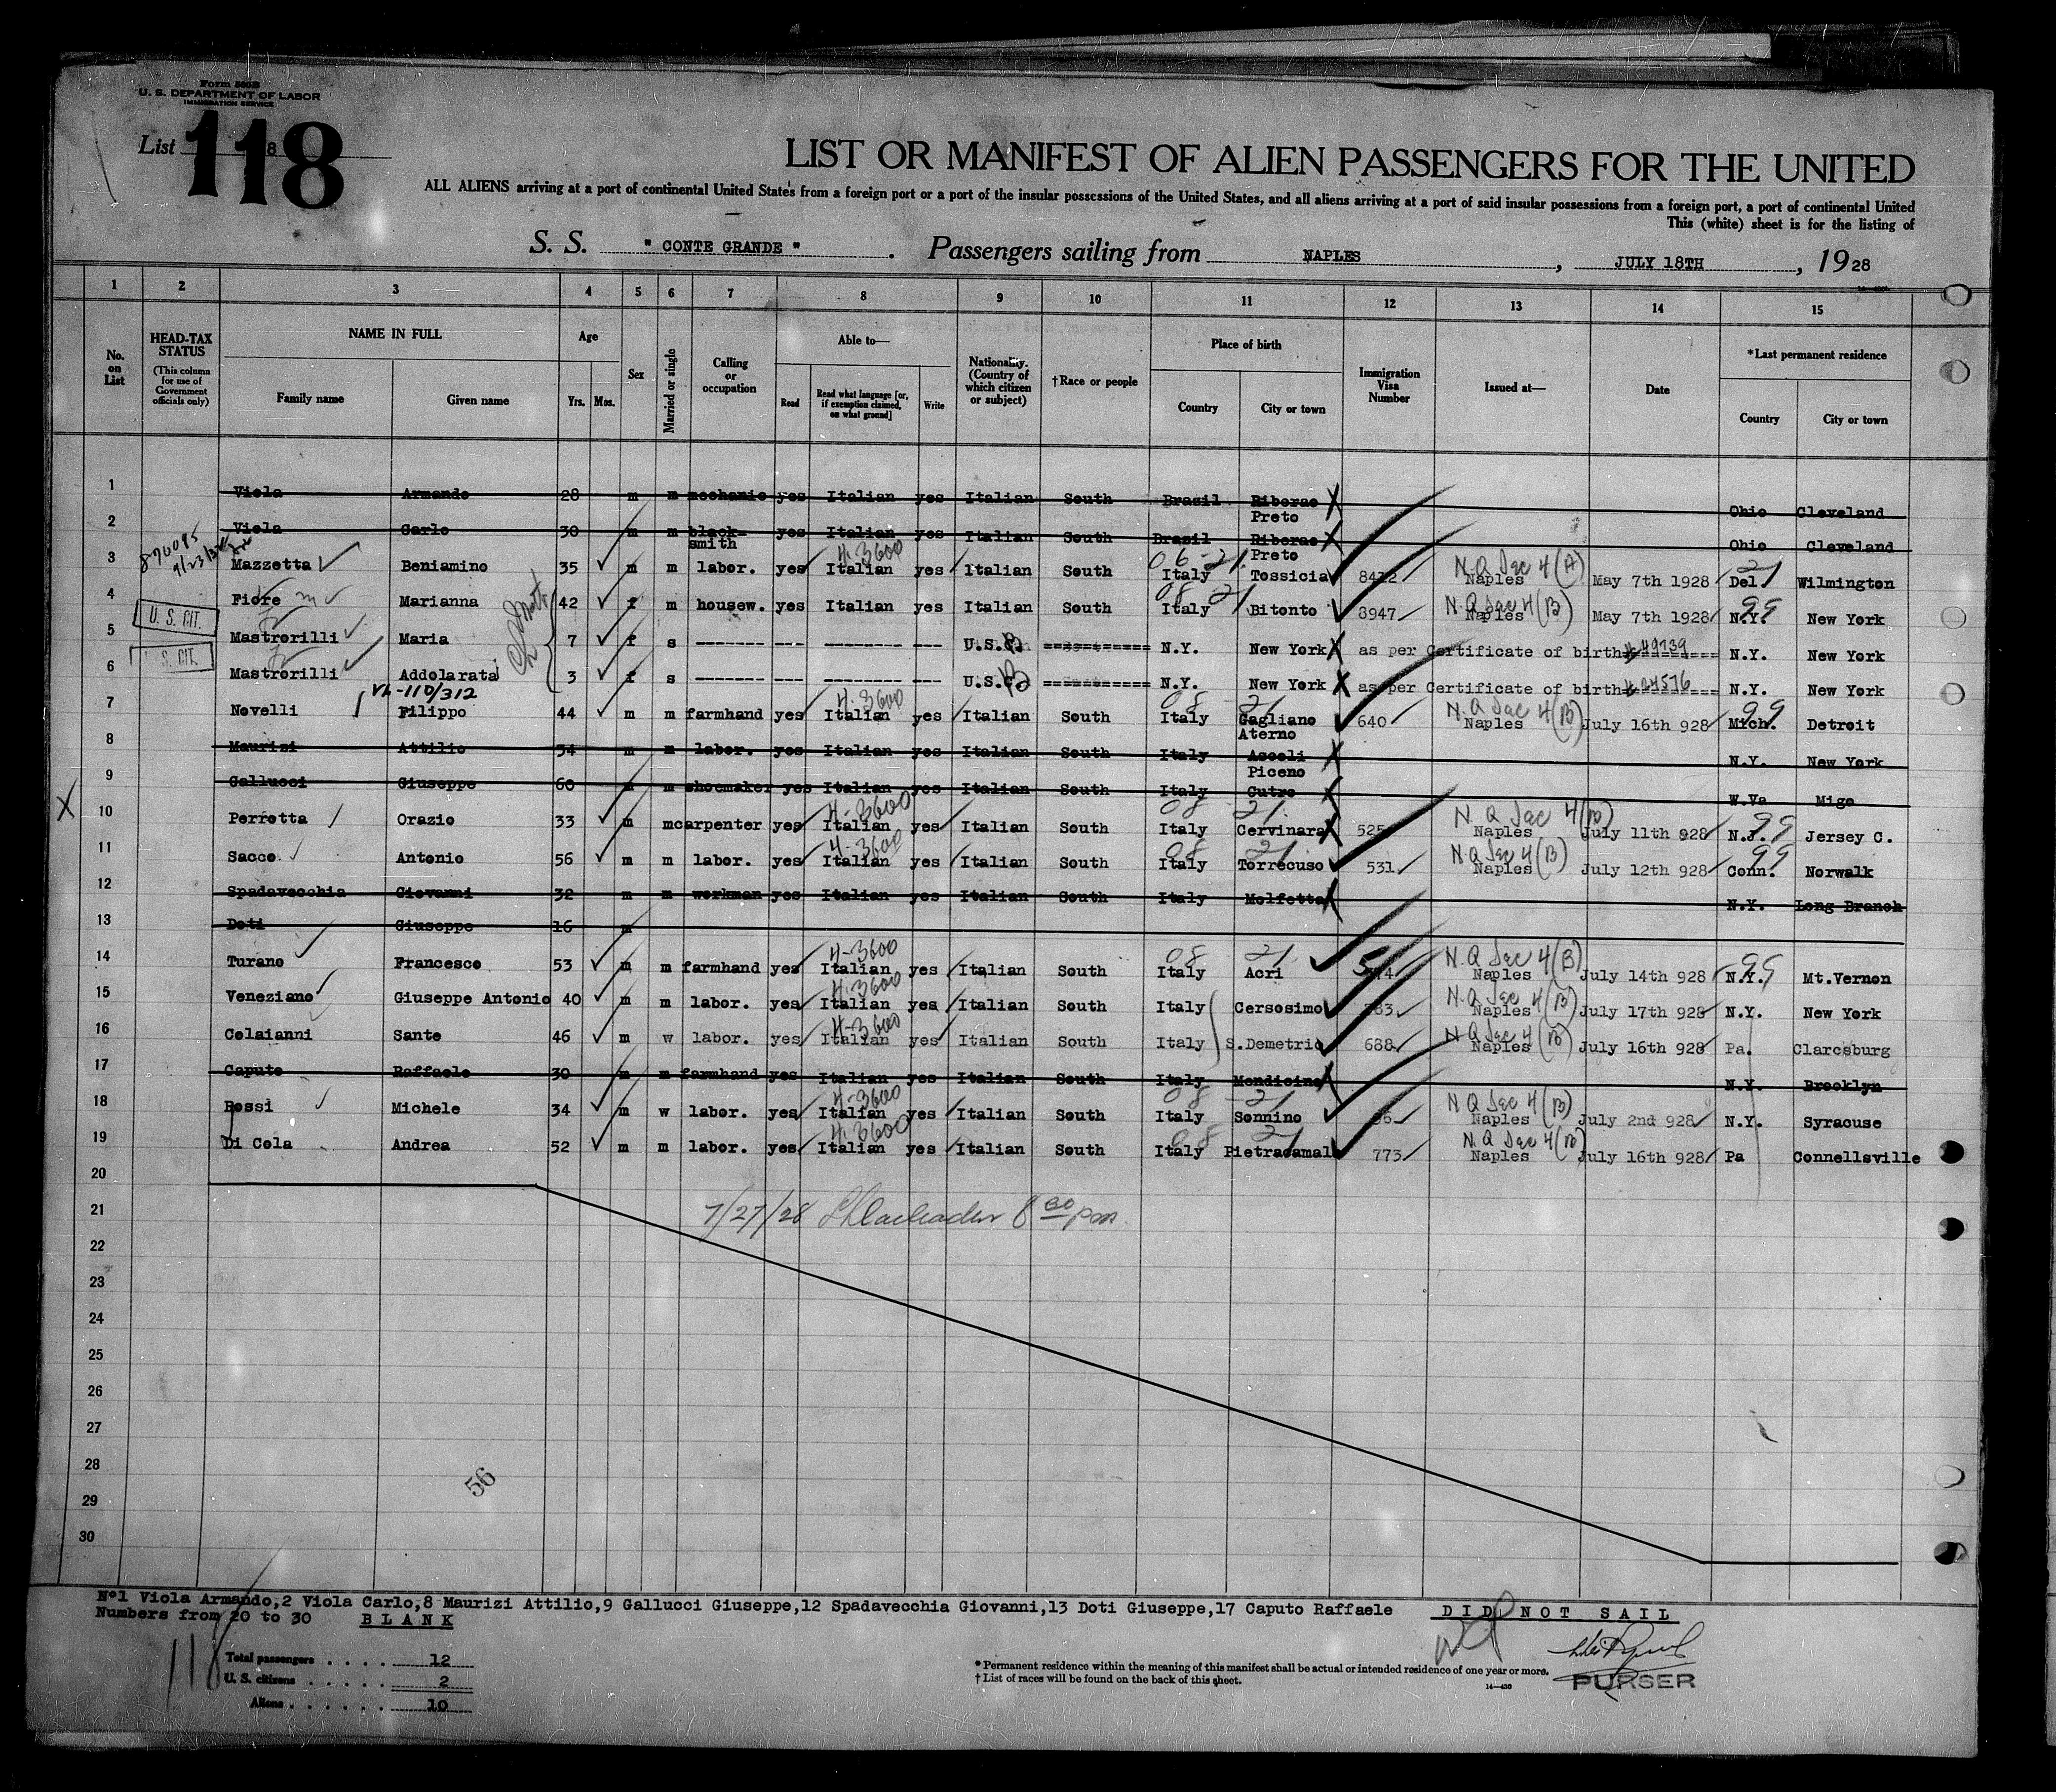 Form 500B
U. S. DEPARTMENT OF LABOR
IMMIGRATION SERVICE
List 8
118
LIST OR MANIFEST OF ALIEN PASSENGERS FOR THE UNITED
ALL ALIENS arriving at a port of continental United States from a foreign port or a port of the insular possessions of the United States, and all aliens arriving at a port of said insular possessions from a foreign port, a port of continental United
This (white) sheet is for the listing of
S. S. " CONTE GRANDE " . Passengers sailing from NAPLES , JULY 18TH , 1928
1 2 3 4 5 6 7 8 9 10 11 12 13 14 15
No. on List
HEAD-TAX STATUS (This column for use of Government officials only)
NAME IN FULL
Family name Given name
Age
Yrs. Mos.
Sex
Married or single
Calling or occupation
Able to—
Read Read what language [or, if exemption claimed, on what ground] Write
Nationality. (Country of which citizen or subject)
†Race or people
Place of birth
Country City or town
Immigration Visa Number
Issued at—
Date
*Last permanent residence
Country City or town
1 Viola Armando 28 m m mechanic yes Italian yes Italian South Brasil Riberao Preto X Ohio Cleveland
2 Viola Carlo 30 m m black-smith yes Italian yes Italian South Brasil Riberao Preto X Ohio Cleveland
870095
4-3600 06 - 21 N.Q Sec 4 (A) 21
3 Mazzetta Beniamino 35 m m labor. yes Italian yes Italian South Italy Tossicia Naples May 7th 1928 Del. Wilmington
08 21 N.Q Sec 4 (B) 99
4 Fiore Marianna 42 f m housew. yes Italian yes Italian South Italy Bitonto 8947 Naples May 7th 1928 N.Y. New York
U. S. CIT.
5 Mastrorilli Maria 7 f s ------- --- ------- --- U.S. =========== N.Y. New York X as per Certificate of birth # 49739 N.Y. New York
S. CIT.
6 Mastrorilli Addolorata 3 f s ------- --- ------- --- U.S. =========== N.Y. New York X as per Certificate of birth # 24576 N.Y. New York
VL-110/312 4-3600 08 21 N.Q Sec 4 (B) 99
7 Novelli Filippo 44 m m farmhand yes Italian yes Italian South Italy Gagliano Aterno 640 Naples July 16th 928 Mich. Detroit
8 Maurizi Attilio 54 m m labor. yes Italian yes Italian South Italy Ascoli Piceno X N.Y. New York
9 Gallucci Giuseppe 60 m m shoemaker yes Italian yes Italian South Italy Cutro X W.Va Migo
X 4-3600 08 21 N.Q Sec 4 (B) 99
10 Perretta Orazio 33 m m carpenter yes Italian yes Italian South Italy Cervinara X 525 Naples July 11th 928 N.J. Jersey C.
4-3600 08 21 N.Q Sec 4 (B) 99
11 Sacco Antonio 56 m m labor. yes Italian yes Italian South Italy Torrecuso 531 Naples July 12th 928 Conn. Norwalk
12 Spadavecchia Giovanni 32 m m workman yes Italian yes Italian South Italy Molfetta X N.Y. Long Branch
13 Doti Giuseppe 16 m
4-3600 08 21 N.Q Sec 4 (B) 99
14 Turano Francesco 53 m m farmhand yes Italian yes Italian South Italy Acri Naples July 14th 928 N.Y. Mt.Vernon
4-3600 N.Q Sec 4 (B)
15 Veneziano Giuseppe Antonio 40 m m labor. yes Italian yes Italian South Italy Cersosimo Naples July 17th 928 N.Y. New York
4-3600 N.Q Sec 4 (B)
16 Colaianni Sante 46 m w labor. yes Italian yes Italian South Italy S.Demetrio 688 Naples July 16th 928 Pa. Claresburg
17 Caputo Raffaele 30 m m farmhand yes Italian yes Italian South Italy Mondicino X N.Y. Brooklyn
4-3600 08 - 21 N.Q Sec 4 (B)
18 Rossi Michele 34 m w labor. yes Italian yes Italian South Italy Sonnino Naples July 2nd 928 N.Y. Syracuse
4-3600 08 21 N.Q Sec 4 (B)
19 Di Cola Andrea 52 m m labor. yes Italian yes Italian South Italy Pietracamal 773 Naples July 16th 928 Pa Connellsville
20
21 7/27/28 8 00 pm
22
23
24
25
26
27
28
56
29
30
Nº1 Viola Armando,2 Viola Carlo,8 Maurizi Attilio,9 Gallucci Giuseppe,12 Spadavecchia Giovanni,13 Doti Giuseppe,17 Caputo Raffaele DID NOT SAIL
Numbers from 20 to 30 BLANK
118
Total passengers . . . . 12
U. S. citizens . . . . . 2
Aliens . . . . . . 10
* Permanent residence within the meaning of this manifest shall be actual or intended residence of one year or more.
† List of races will be found on the back of this sheet.
14—430
PURSER